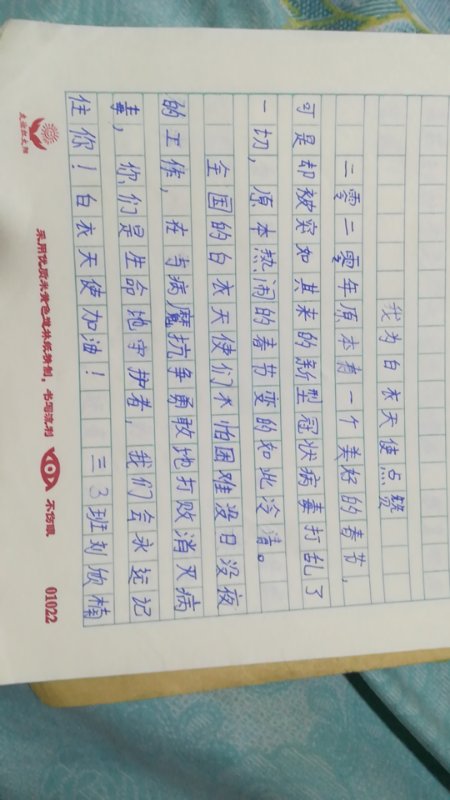 我为白衣天使点赞
二零二零年原本有一个美好的春节，
可是却被突如其来的新型冠状病毒打乱了
一切，原本热闹的春节变的如此冷清。
全国的白衣天使们不怕困难没日没夜
的工作，在与病魔抗争勇敢地打败消灭病
毒，你们是生命地守护者，我们会永远记
住你！白衣天使加油！ 三3班刘欣楠
采用优质米黄色道林纸特制，书写流利 不伤眼 01022